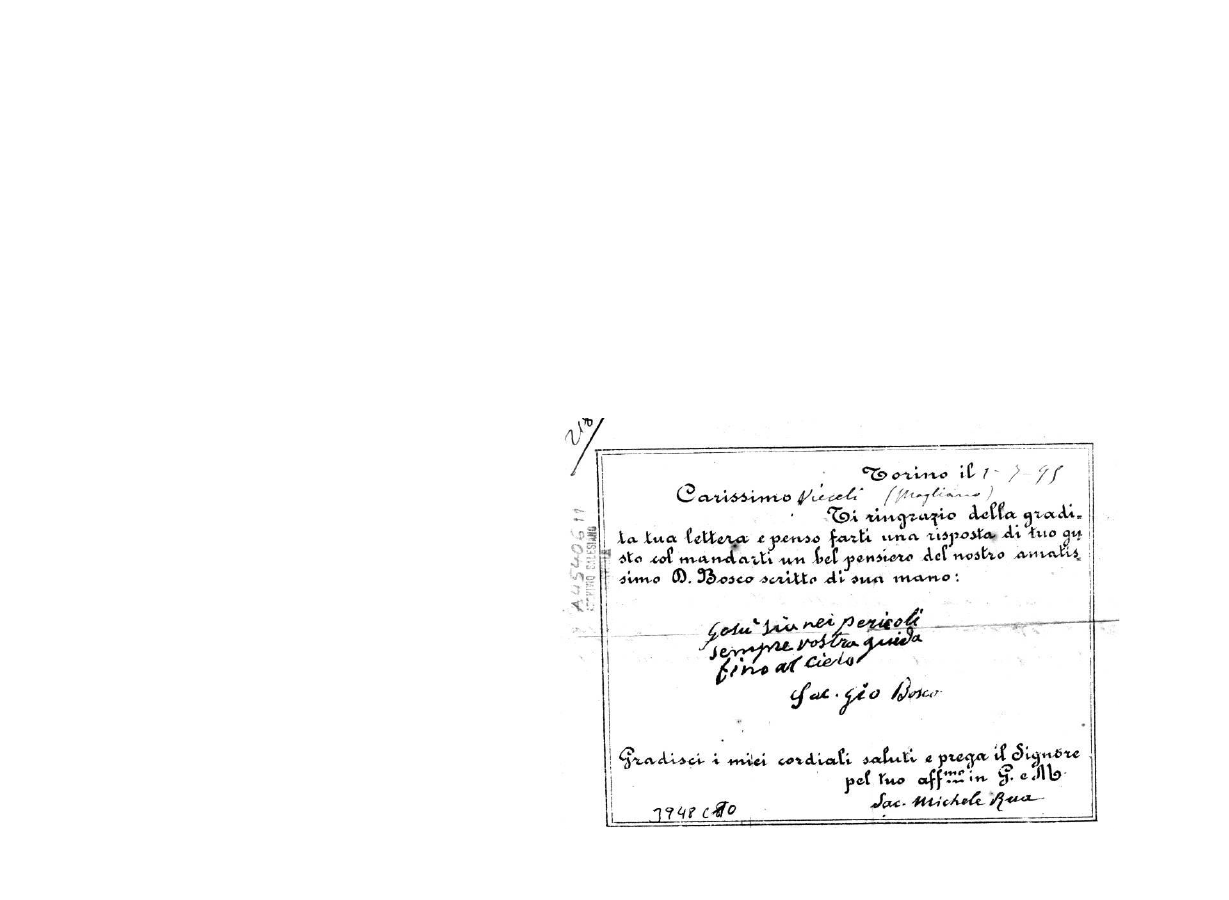 218
Torino il 1-7-95
Carissimo Vieceli (Mogliano)
Ti ringrazio della gradi=
ta tua lettera e penso farti una risposta di tuo gu
sto col mandarti un bel pensiero del nostro amatis=
simo D. Bosco scritto di sua mano:
Gesù sia nei pericoli
sempre vostra guida
fino al cielo
Sac. Gio Bosco
Gradisci i miei cordiali saluti e prega il Signore
pel tuo aff.mo in G. e M.
Sac. Michele Rua
3948 C10
A4540611
ARCHIVIO SALESIANO